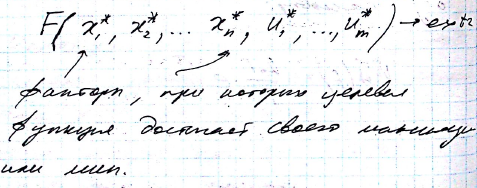 F( x₁*, x₂*, ... xₙ*, u₁*, ..., uₘ* ) → extr
факторы, при которых целевая
функция достигает своего максимума
или мин.